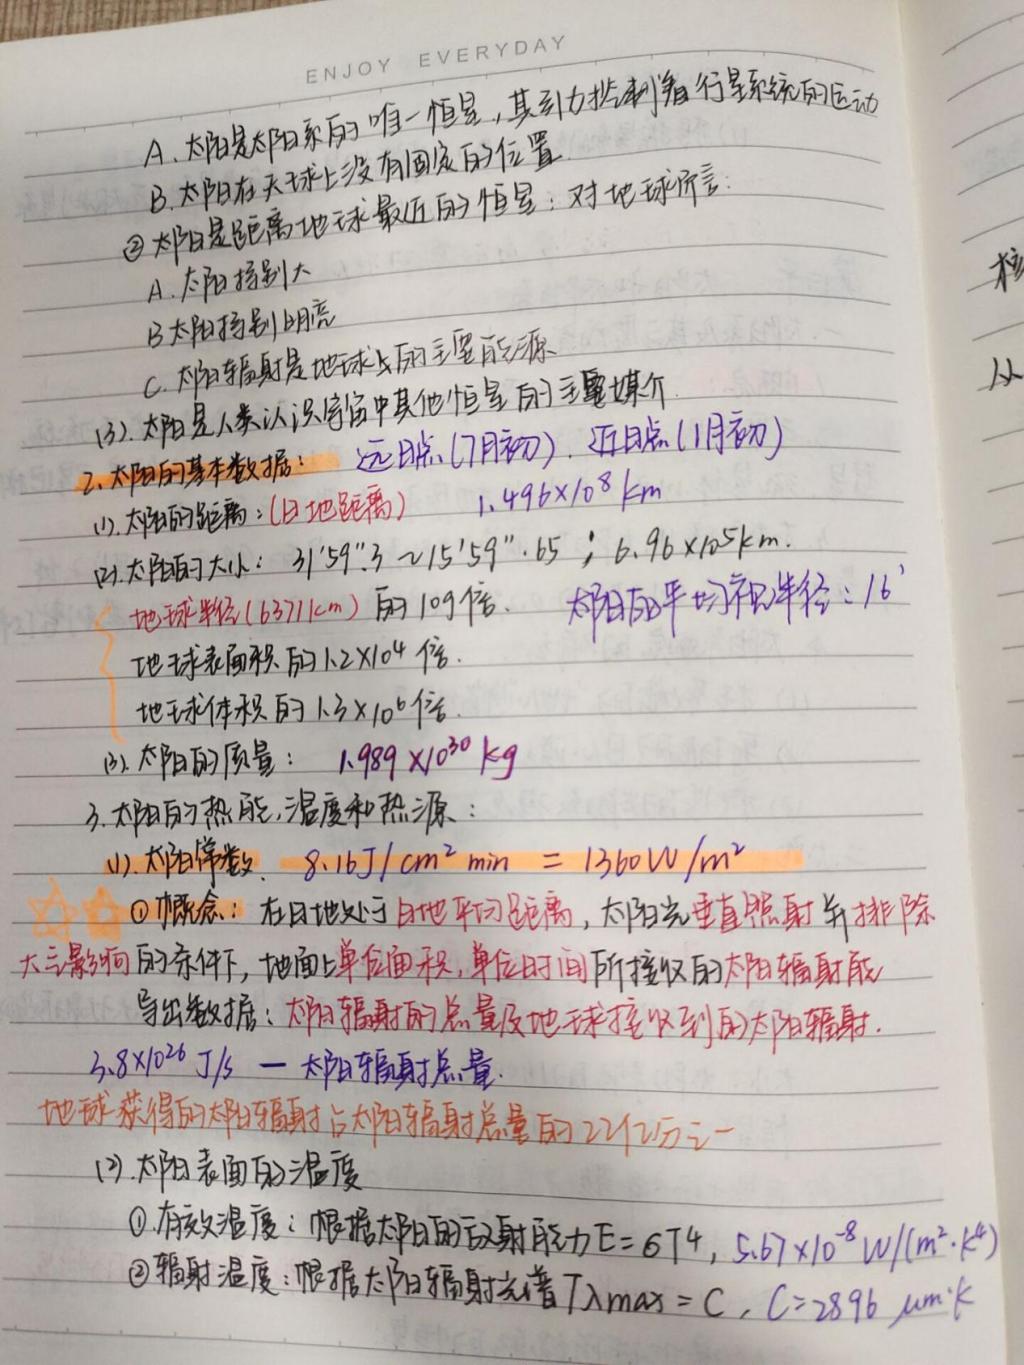 ENJOY EVERYDAY
A. 太阳是太阳系的唯一恒星，其引力控制着行星系统的运动
B. 太阳在天球上没有固定的位置
②太阳是距离地球最近的恒星：对地球所言：
A. 太阳特别大
B 太阳特别明亮
C. 太阳辐射是地球上的主要能源
(3). 太阳是人类认识宇宙中其他恒星的主要媒介.
2. 太阳的基本数据： 远日点(7月初)、近日点(1月初)
(1). 太阳的距离：(日地距离) 1.496×10⁸km
(2). 太阳的大小： 31′59″.3 ~15′59″.65 ；6.96×10⁵km.
地球半径(6371km)的109倍. 太阳的平均视半径：16′
地球表面积的1.2×10⁴倍.
地球体积的1.3×10⁶倍.
(3). 太阳的质量： 1.989×10³⁰kg
3. 太阳的热能,温度和热源：
(1). 太阳常数. 8.16J/cm² min = 1360W/m²
①概念：在日地处于日地平均距离，太阳光垂直照射并排除
大气影响的条件下，地面上单位面积,单位时间所接收的太阳辐射能
导出数据：太阳辐射的总量及地球接收到的太阳辐射.
3.8×10²⁶ J/s — 太阳辐射总量.
地球获得的太阳辐射占太阳辐射总量的22亿分之一
(2). 太阳表面的温度
①. 有效温度：根据太阳的放射能力E=6T4，5.67×10⁻⁸ W/(m²·k⁴)
②辐射温度：根据太阳辐射光谱Tλmax = C，C=2896 μm·K
核
从